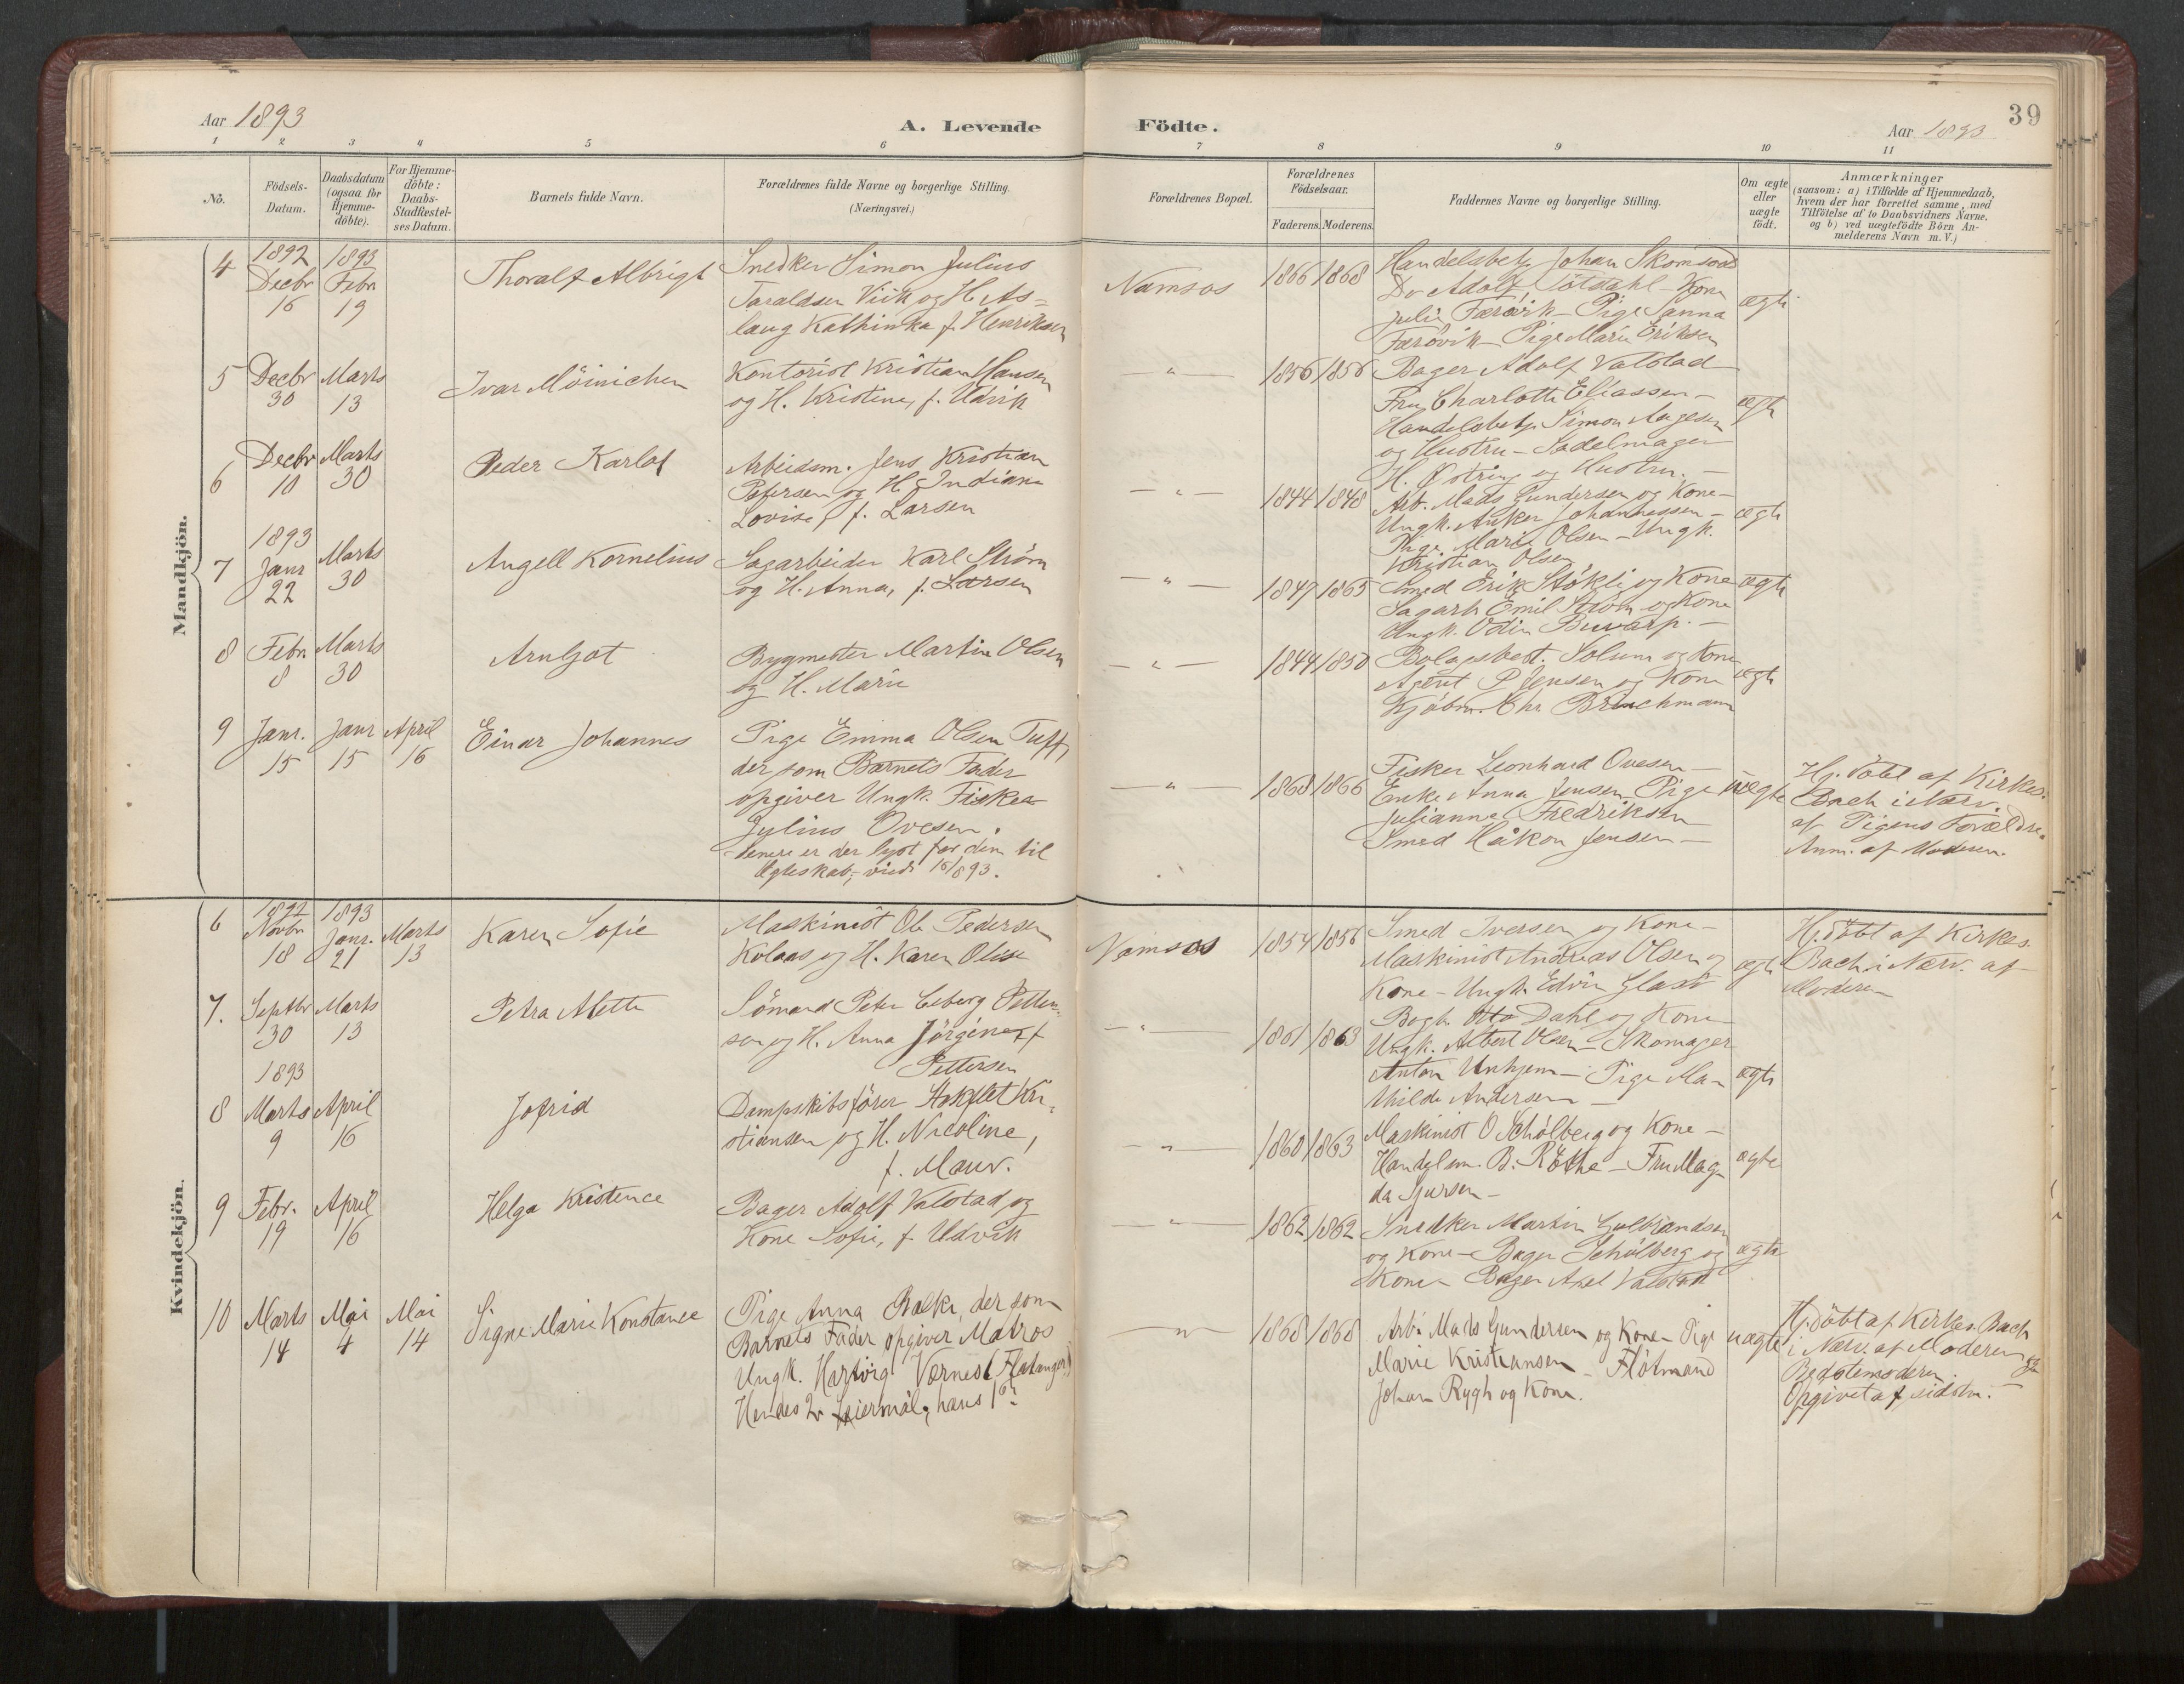 Aar 1893
A. Levende
Födte.
39
Aar 1893
1 2 3 4 5 6 7 8 9 10 11
No.
Födsels-
Datum.
Daabsdatum
(ogsaa for
Hjemme-
döbte).
For Hjemme-
döbte:
Daabs-
Stadfæstel-
ses Datum.
Barnets fulde Navn.
Forældrenes fulde Navne og borgerlige Stilling.
(Næringsvei.)
Forældrenes Bopæl.
Forældrenes
Födselsaar.
Faderens. Moderens.
Faddernes Navne og borgerlige Stilling.
Om ægte
eller
uægte
födt.
Anmærkninger
(saasom: a) i Tilfælde af Hjemmedaab,
hvem der har forrettet samme, med
Tilföielse af to Daabsvidners Navne,
og b) ved uægtefödte Börn An-
melderens Navn m. V.)
Mandkjön.
4
1892
Decbr
16
1893
Febr
19
Thoralf Albrigt
Snedker Simon Julius
Taraldsen Viik og H. As=
laug Kathinka f. Henriksen
Namsos
1866 1868
Handelsbetj. Johan
Do Adolf Kone
Julie Færövik - Pige Sanna
Færövik - Pige Marie Eriksen
ægte
5
Decbr
30
Marts
13
Ivar Möinichen
Kontorist Kristian Hansen
og H. Kristine, f. Udvik
— " —
1856 1856
Bager Adolf Valstad
Fru Charlotte Eliassen -
Handelsbetj. Simon Aagesen
og Hustru - Sadelmager
H. Östring og Hustru. -
ægte
6
Decbr
10
Marts
30
Peder Karlot
Arbeidsm. Jens Kristian
Petersen og H. Indiane
Lovise, f. Larsen
— " —
1844 1848
Arb. Mads Gundersen og Kone -
Ungk. Anker Johannessen -
Pige Marie Olsen - Ungk.
Kristian Olsen
ægte
7
1893
Janr
22
Marts
30
Angell Kornelius
Sagarbeider Karl Ström
og H. Anna, f. Larsen
— " —
1849 1865
Smed Erik Stökli og Kone
Sagarb. Emil Ström og Kone
Ungk. Odin Buvarp. -
ægte
8
Febr
8
Marts
30
Arnljot
Bygmester Martin Olsen
og H. Marie
— " —
1844 1850
Bolagsbest. Solum og Kone
Agent P Jensen og Kone
Kjöbm. Chr. Brinchmann
ægte
9
Janr.
15
Janr
15
April
16
Einar Johannes
Pige Emma Olsen
der som Barnets Fader
opgiver Ungk. Fisker
Julius Ovesen.
Senere er der lyst for dem til
Ægteskab, viede 15/ 893.
— " —
1868 1866
Fisker Leonhard Ovesen -
Enke Anna Jensen Pige
Julianna Fredriksen
Smed Håkon Jensen -
uægte
Hj. döbt af Kirkes.
Bach i Nærv.
af Pigens Forældre.
Anm. af Moderen.
Kvindekjön.
6
1892
Novbr
18
1893
Janr.
21
Marts
13
Karen Sofie
Maskinist Ole Pedersen
Kolaas og H. Karen Olise
Namsos
1854 1856
Smed Iversen og Kone -
Maskinist Andreas Olsen og
Kone - Ungk. Edvin Glasö
ægte
Hj. döbt af Kirkes.
Bach i Nærv. af
Moderen
7.
Septbr
30
Marts
13
Petra Mette
Sömand Peter Petter-
sen og H. Anna Jörgine, f
Pettersen
— " —
1861 1863
Bogh. Otto Dahl og Kone
Ungk. Albert Olsen - Skomager
Anton Unhjem - Pige Ma-
thilde Andersen -
ægte
8
1893
Marts
9
April
16
Jofrid
Dampskibsförer Kri-
stiansen og H. Nicoline,
f. Maur.
— " —
1860 1863
Maskinist O Schölberg og Kone -
Handelsm. B. Röthe - Fru Mag-
da Sjursen -
ægte
9
Febr.
19
April
16
Helga Kristence
Bager Adolf Valstad og
Kone Sofie, f. Udvik
— " —
1862 1862
Snedker Martin Gulbrandsen
og Kone - Bager Schölberg og
Kone - Bager Axel Valstad
ægte
10
Marts
14
Mai
4
Mai
14
Signe Marie Konstance
Pige Anna Balke, der som
Barnets Fader opgiver Matros
Ungk. Hartvig Værnes (Flatanger)
Hendes 2 Leiermål, hans 1
— " —
1868 1868
Arb. Mads Gundersen og Kone - Pige
Marie Kristiansen - Flötmand
Johan Rygh og Kone.
uægte
Hj. döbt af Kirkes. Bach
i Nærv. af Moderen og
Bedstemoderen.
Opgivet af sidstn. -